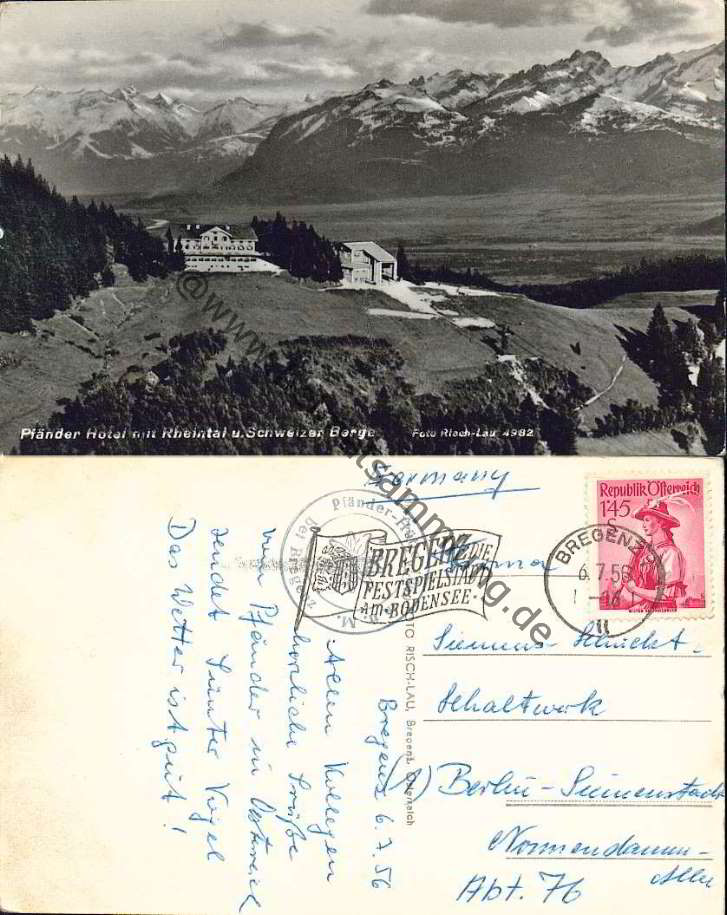 Pfänder Hotel mit Rheintal u. Schweizer Berge Foto Risch-Lau 4982
Germany
Republik Österreich
1·45
S
BREGENZ
6.7.56
Pfänder-Ho
bei Bregenz
BREGENZ DIE
FESTSPIELSTADT
AM BODENSEE
Firma
Siemens Schuckt.
Schaltwerk
(1) Berlin-Siemensstadt
Nonnendamm-
Allee
Abt. 76
FOTO RISCH-LAU, Bregenz, Österreich
Bregenz 6.7.56
Allen Kollegen
herzliche Grüße
vom Pfänder in Östereich
sendet Günter Vogel
Das Wetter ist gut!